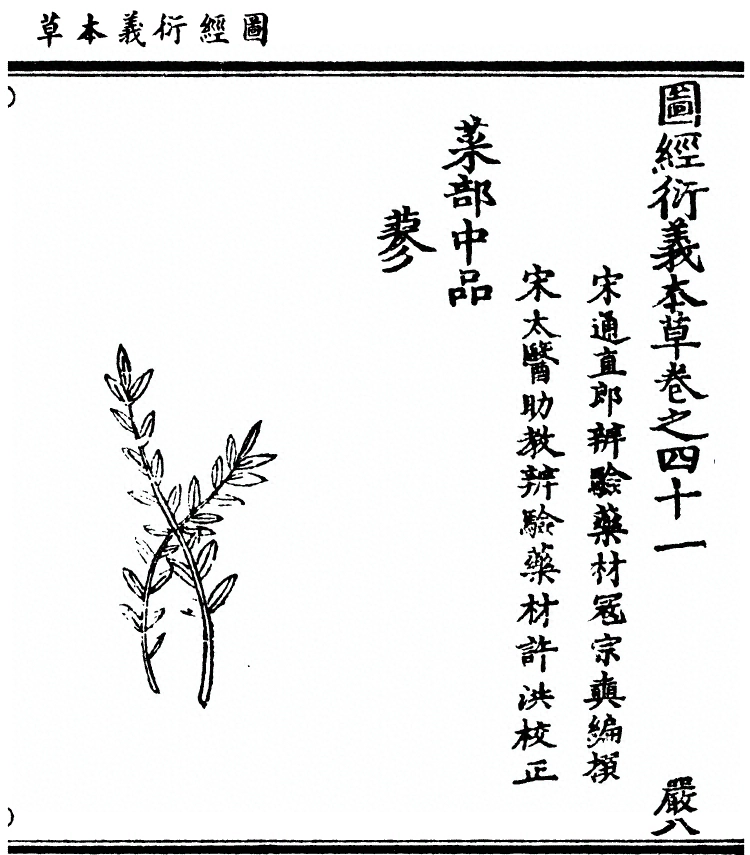 圖經衍義本草
圖經衍義本草卷之四十一
嚴八
宋通直郎辨驗藥材寇宗奭編撰
宋太醫助教辨驗藥材許洪校正
菜部中品
蓼